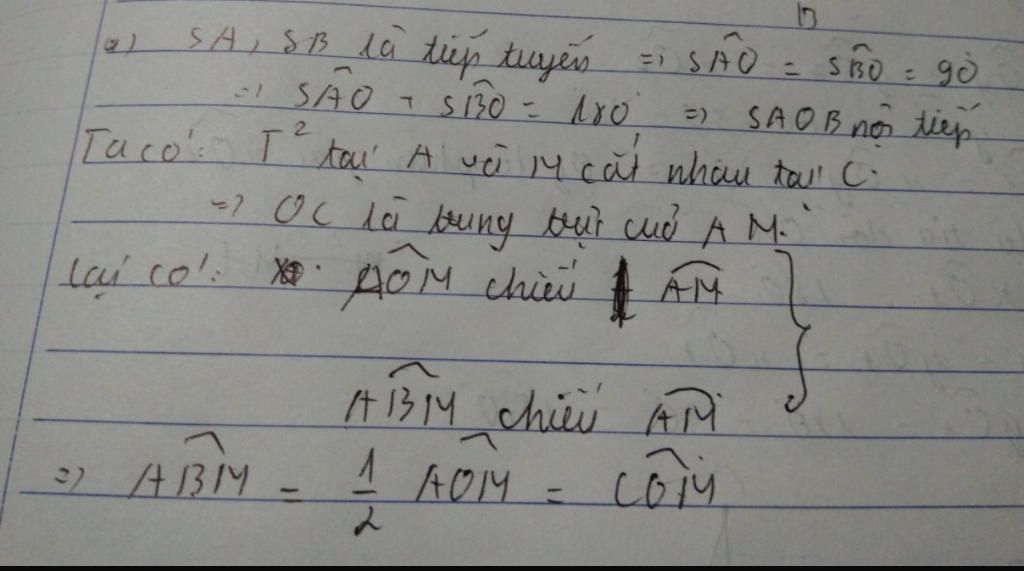 a) SA, SB là tiếp tuyến => SÂO = SB̂O = 90
=> SÂO + SB̂O = 180 => SAOB nội tiếp
Ta có: T² tại A và M cắt nhau tại C.
=> OC là trung trực của AM.
Lại có: AÔM chiếu AM̂
AB̂M chiếu AM̂
=> AB̂M = 1/2 AÔM = CÔM